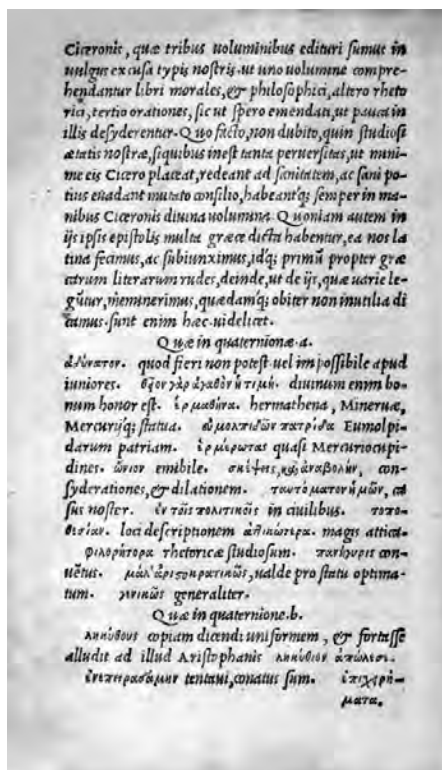 Ciceronis, quæ tribus uoluminibus edituri sumus in
uulgus excusa typis nostris. ut uno uolumine compre-
hendantur libri morales, & philosophici, altero rheto
rici, tertio orationes, sic ut spero emendati, ut pauca in
illis desyderentur. Quo facto, non dubito, quin studiosi
ætatis nostræ, si quibus inest tanta peruersitas, ut mini-
me eis Cicero placeat, redeant ad sanitatem, ac sani po-
tius euadant mutato consilio, habeantq; semper in ma-
nibus Ciceronis diuina uolumina. Quoniam autem in
ijs ipsis epistolis multa græce dicta habentur, ea nos la
tina fecimus, ac subiunximus, idq; primũ propter græ
carum literarum rudes, deinde, ut de ijs, quæ uarie le-
gũtur, meminerimus, quædamq; obiter non inutilia di
camus. sunt enim hæc uidelicet.
Quæ in quaternionæ. a.
ἀδύνατον. quod fieri non potest uel impossibile apud
iuniores. θεῖον γὰρ ἀγαθὸν ἡ τιμή. diuinum enim bo-
num honor est. ἑρμαθήνα. hermathena, Mineruæ,
Mercurijq; statua. εὐμολπιδῶν πατρίδα Eumolpi-
darum patriam. ἑρμέρωτας quasi Mercuriocupi-
dines. ὤνιον emibile. σκέψεις, καὶ ἀναβολὴν, con-
syderationes, & dilationem. ταυτόματον ἡμῶν, ca
sus noster. ἐν τοῖς πολιτικοῖς in ciuilibus. τοπο-
θεσίαν. loci descriptionem ἀττικώτερα. magis attica.
φιλορήτορα rhetoricæ studiosum. πανήγυρις con-
uẽtus. μάλ' ἀριστοκρατικῶς, ualde pro statu optima-
tum. γενικῶς generaliter.
Quæ in quaternione. b.
ληκύθους copiam dicendi uniformem, & fortasse
alludit ad illud Aristophanis ληκύθιον ἀπώλεσε.
ἐνεπειρασάμην tentaui, conatus sum. ἐπιχειρή-
ματα.